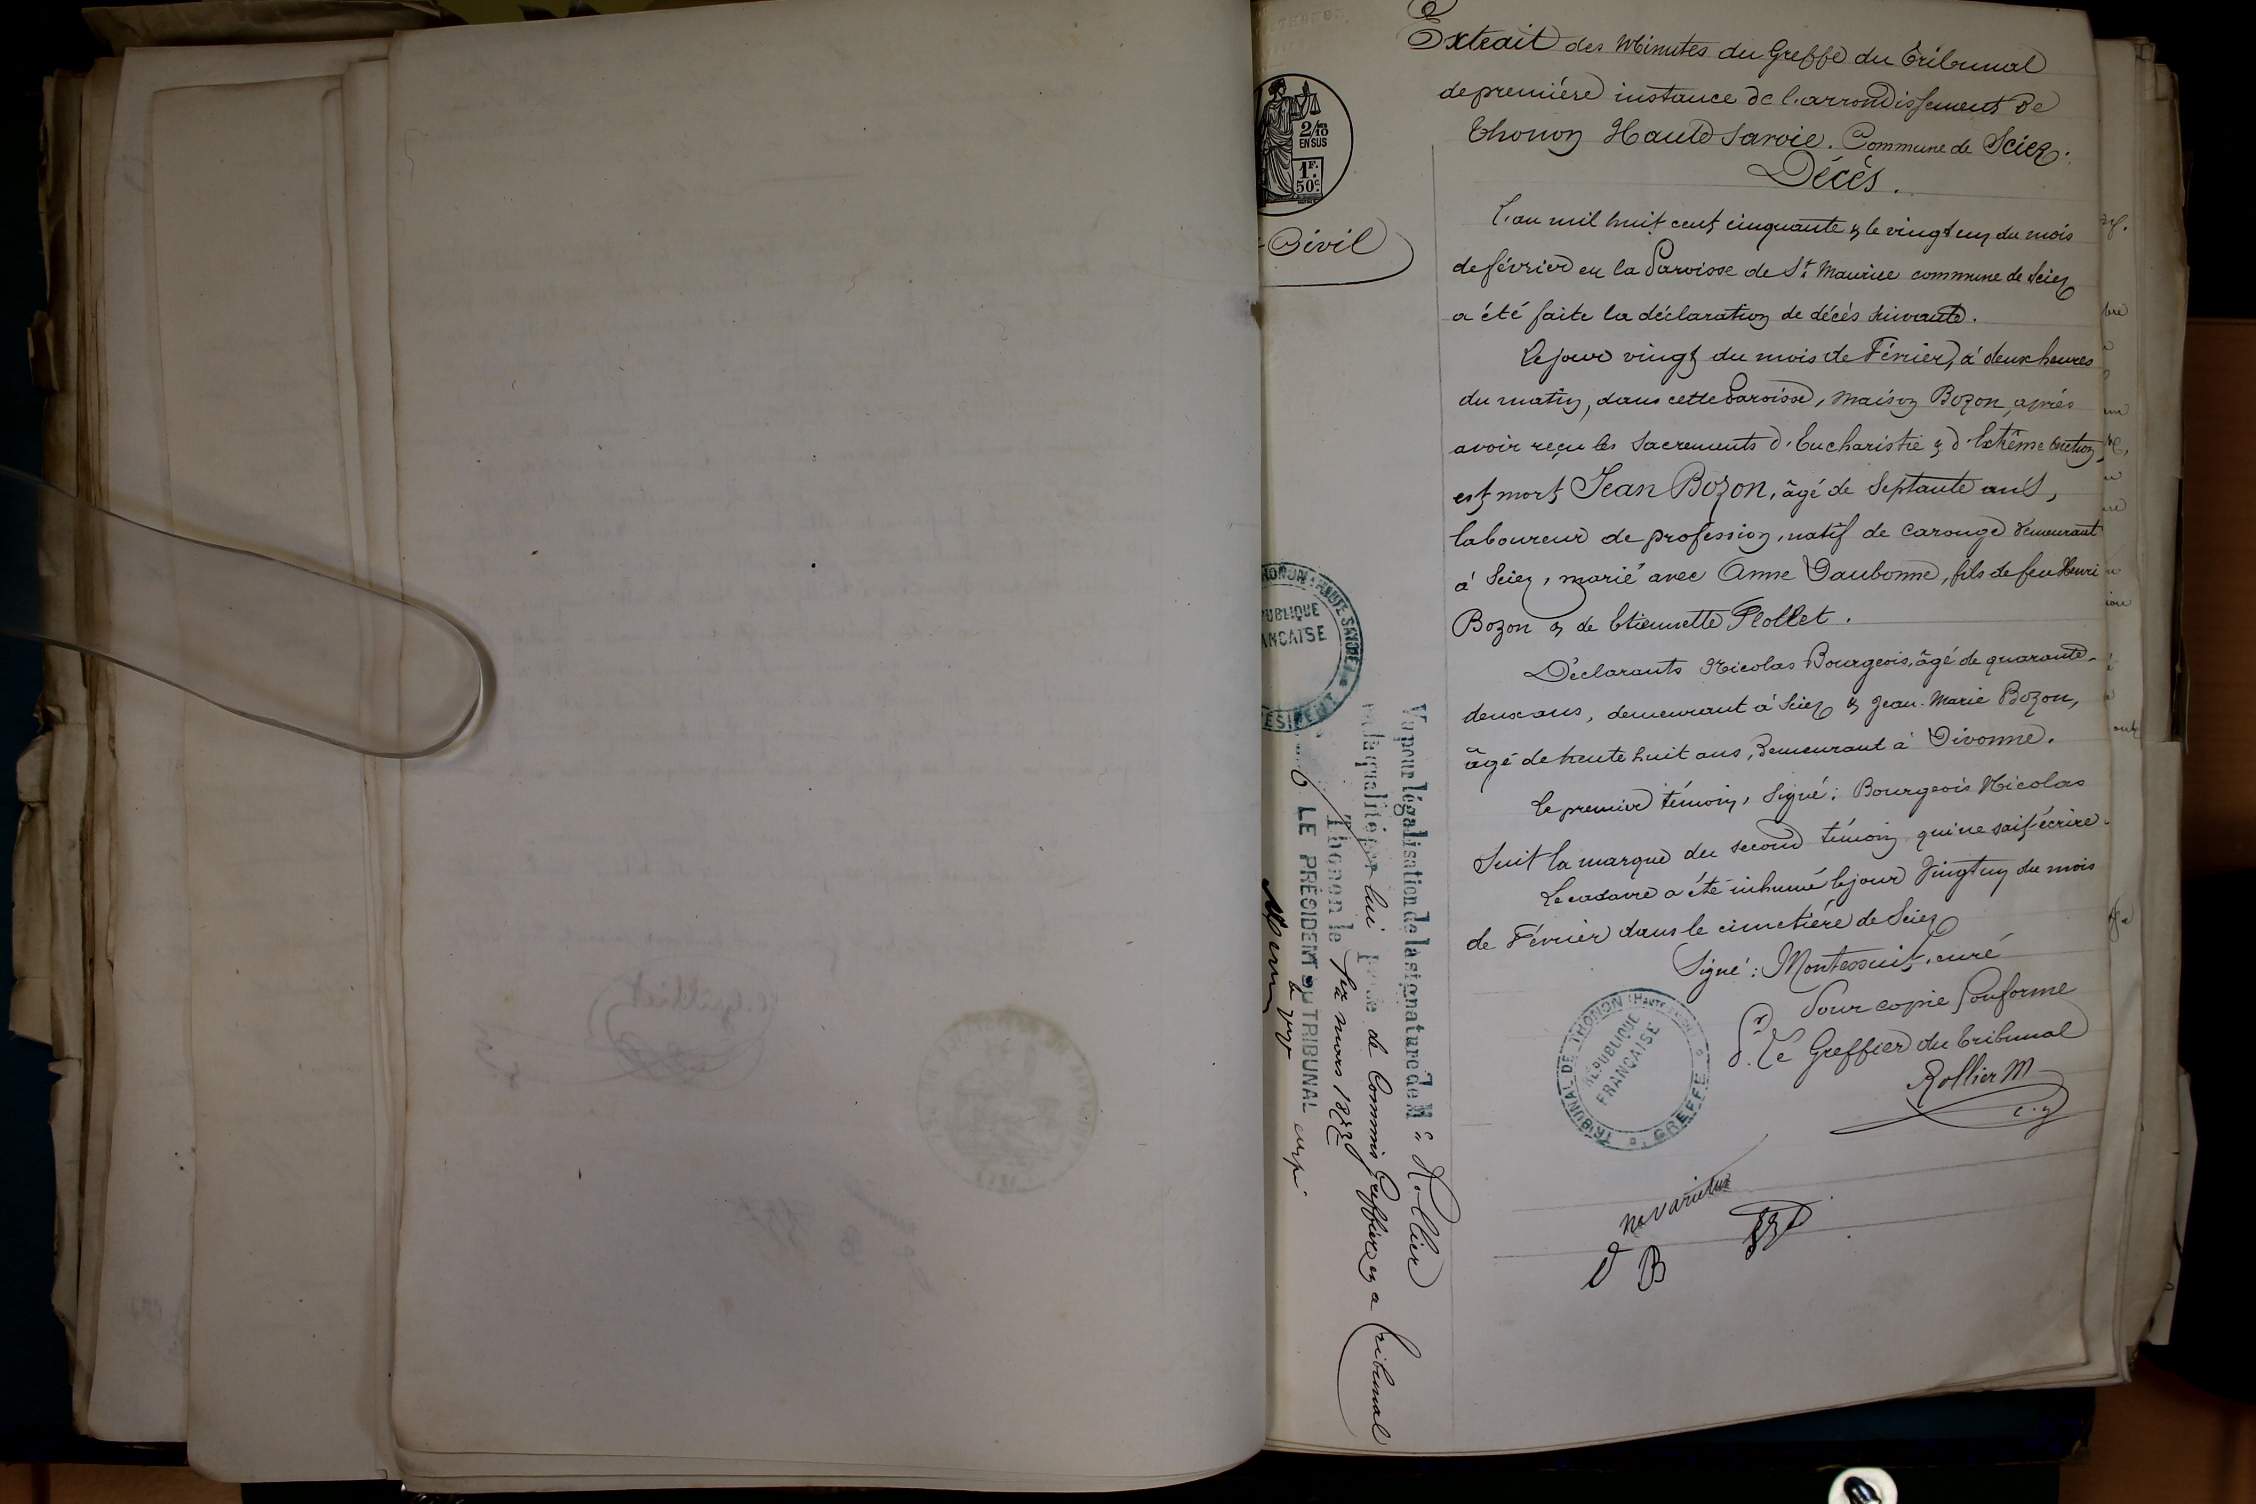 Extrait des Minutes du Greffe du Tribunal
de première instance de l'arrondissement de
Thonon Haute Savoie. Commune de Sciez.
Décès.
L'an mil huit cent cinquante & le vingt un du mois
de février en la Paroisse de St Maurice commune de Sciez
a été faite la déclaration de décès suivante.
Le jour vingt du mois de Février, à deux heures
du matin, dans cette Paroisse, maison Bozon, après
avoir reçu les Sacrements d'Eucharistie & d'Extrême Onction,
est mort Jean Bozon, âgé de Septante ans,
laboureur de profession, natif de Carouge demeurant
à Sciez, marié avec Anne Daubonne, fils de feu Henri
Bozon & de Etiennette Flollet.
Déclarants Nicolas Bourgeois, âgé de quarante-
deux ans, demeurant à Sciez & Jean-Marie Bozon,
âgé de trente huit ans, demeurant à Divonne.
Le premier témoin, Signé: Bourgeois Nicolas
Suit la marque du second témoin qui ne sait écrire.
Le cadavre a été inhumé le jour Vingt un du mois
de Février dans le cimetière de Sciez
Signé: Montessuit, curé
Pour copie Conforme
Pr. Le Greffier du Tribunal
Rollier M
c. g
Ne Varietur
D B
2/10
EN SUS
1F.
50c.
Civil
THONON (HAUTE SAVOIE)
RÉPUBLIQUE
FRANÇAISE
PRÉSIDENT
Vu pour légalisation de la signature de Mr Rollier
en la qualité par lui prise de Commis Greffier en ce Tribunal
Thonon le 1er mars 188
LE PRÉSIDENT DU TRIBUNAL
TRIBUNAL DE THONON (Haute Savoie)
RÉPUBLIQUE
FRANÇAISE
GREFFE